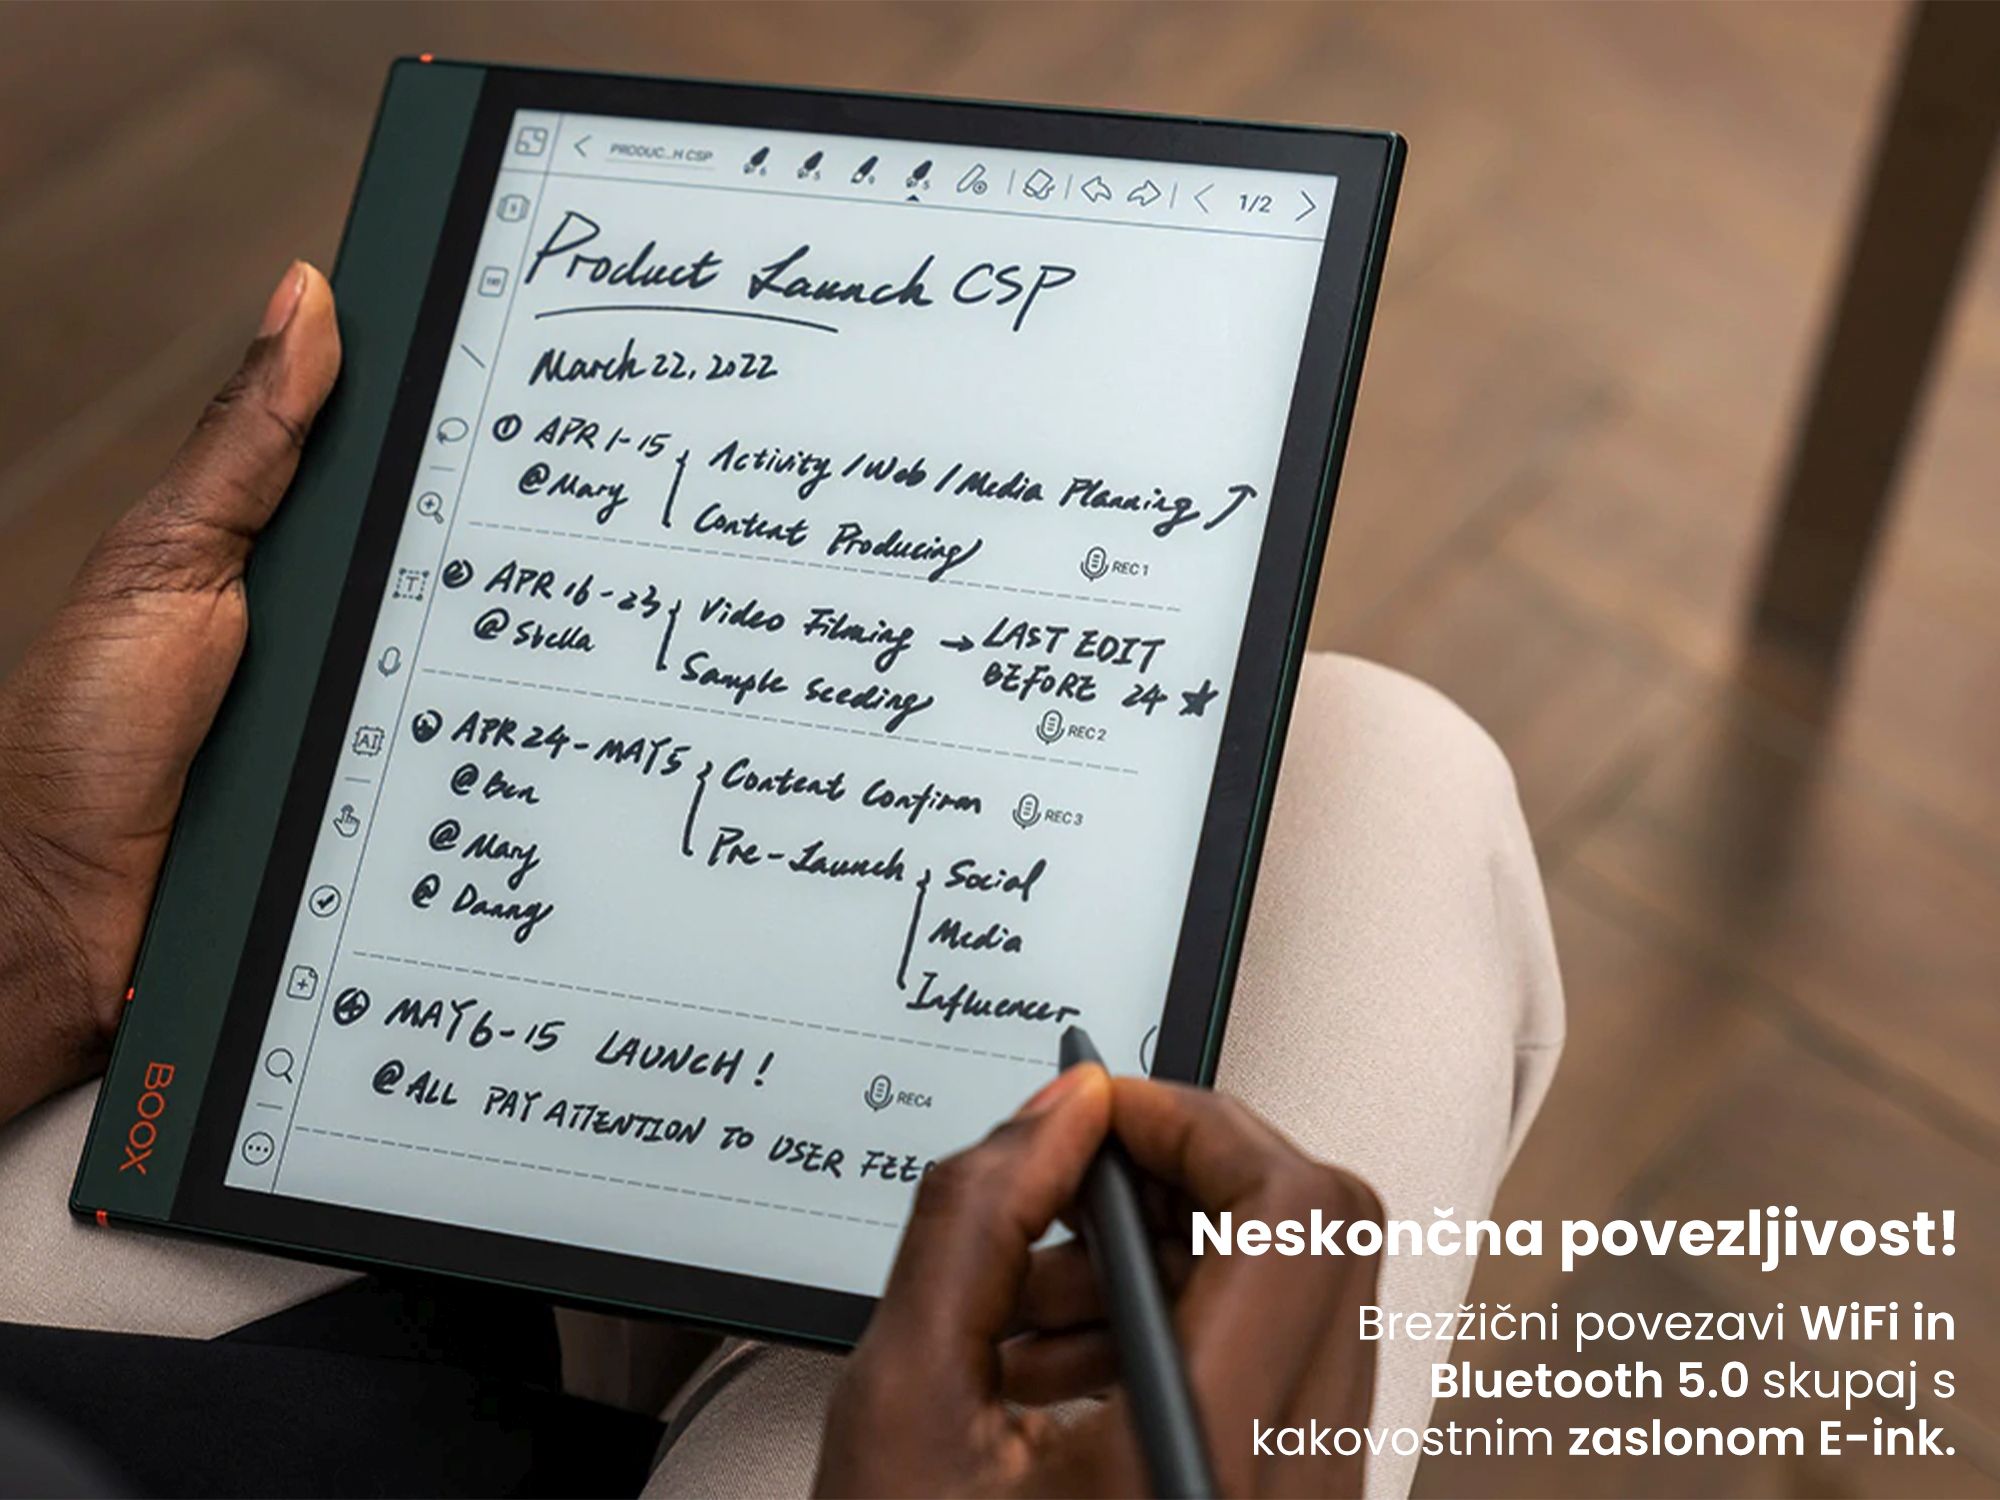 PRODUC...H CSP
1/2
Product Launch CSP
March 22, 2022
① APR 1-15 Activity / Web / Media Planning
@Mary Content Producing
REC 1
② APR 16-23 Video Filming → LAST EDIT
@Stella Sample Seeding BEFORE 24 ★
REC 2
③ APR 24-MAY 5 Content Confirm REC 3
@Ben
Pre-Launch Social
@Mary
Media
@Danny
Influencer
④ MAY 6-15 LAUNCH!
REC4
@ALL PAY ATTENTION TO USER
AI
BOOX
Neskončna povezljivost!
Brezžični povezavi WiFi in
Bluetooth 5.0 skupaj s
kakovostnim zaslonom E-ink.